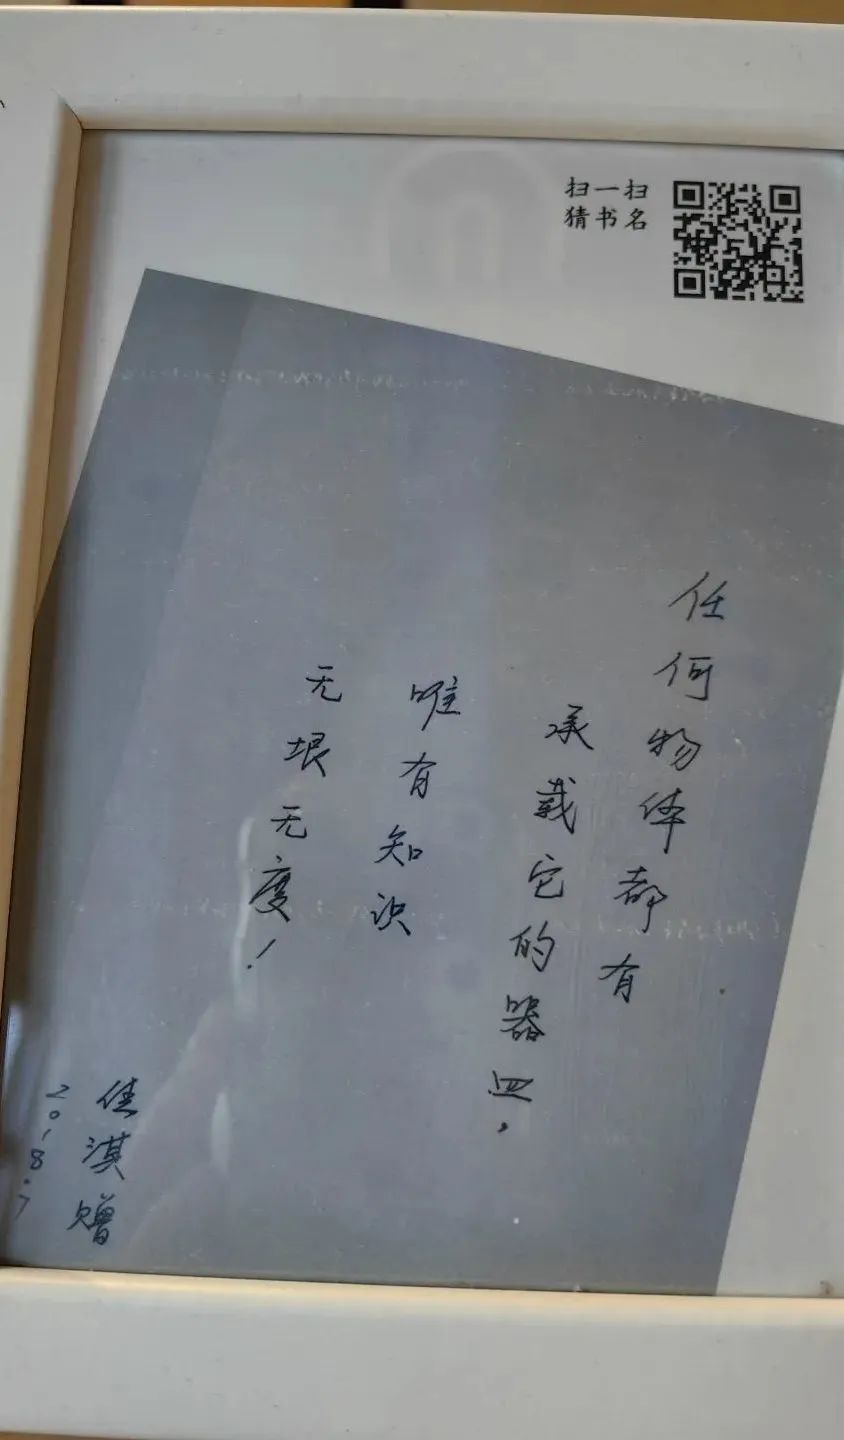 扫一扫
猜书名
任何物体都有
承载它的器皿，
唯有知识
无垠无度！
佳淇赠
2018.7